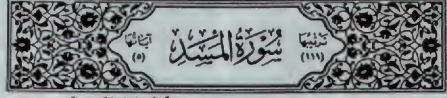 ترتيبها
(١١١)
سُورَةُ المَسَدِ
آياتها
(٥)